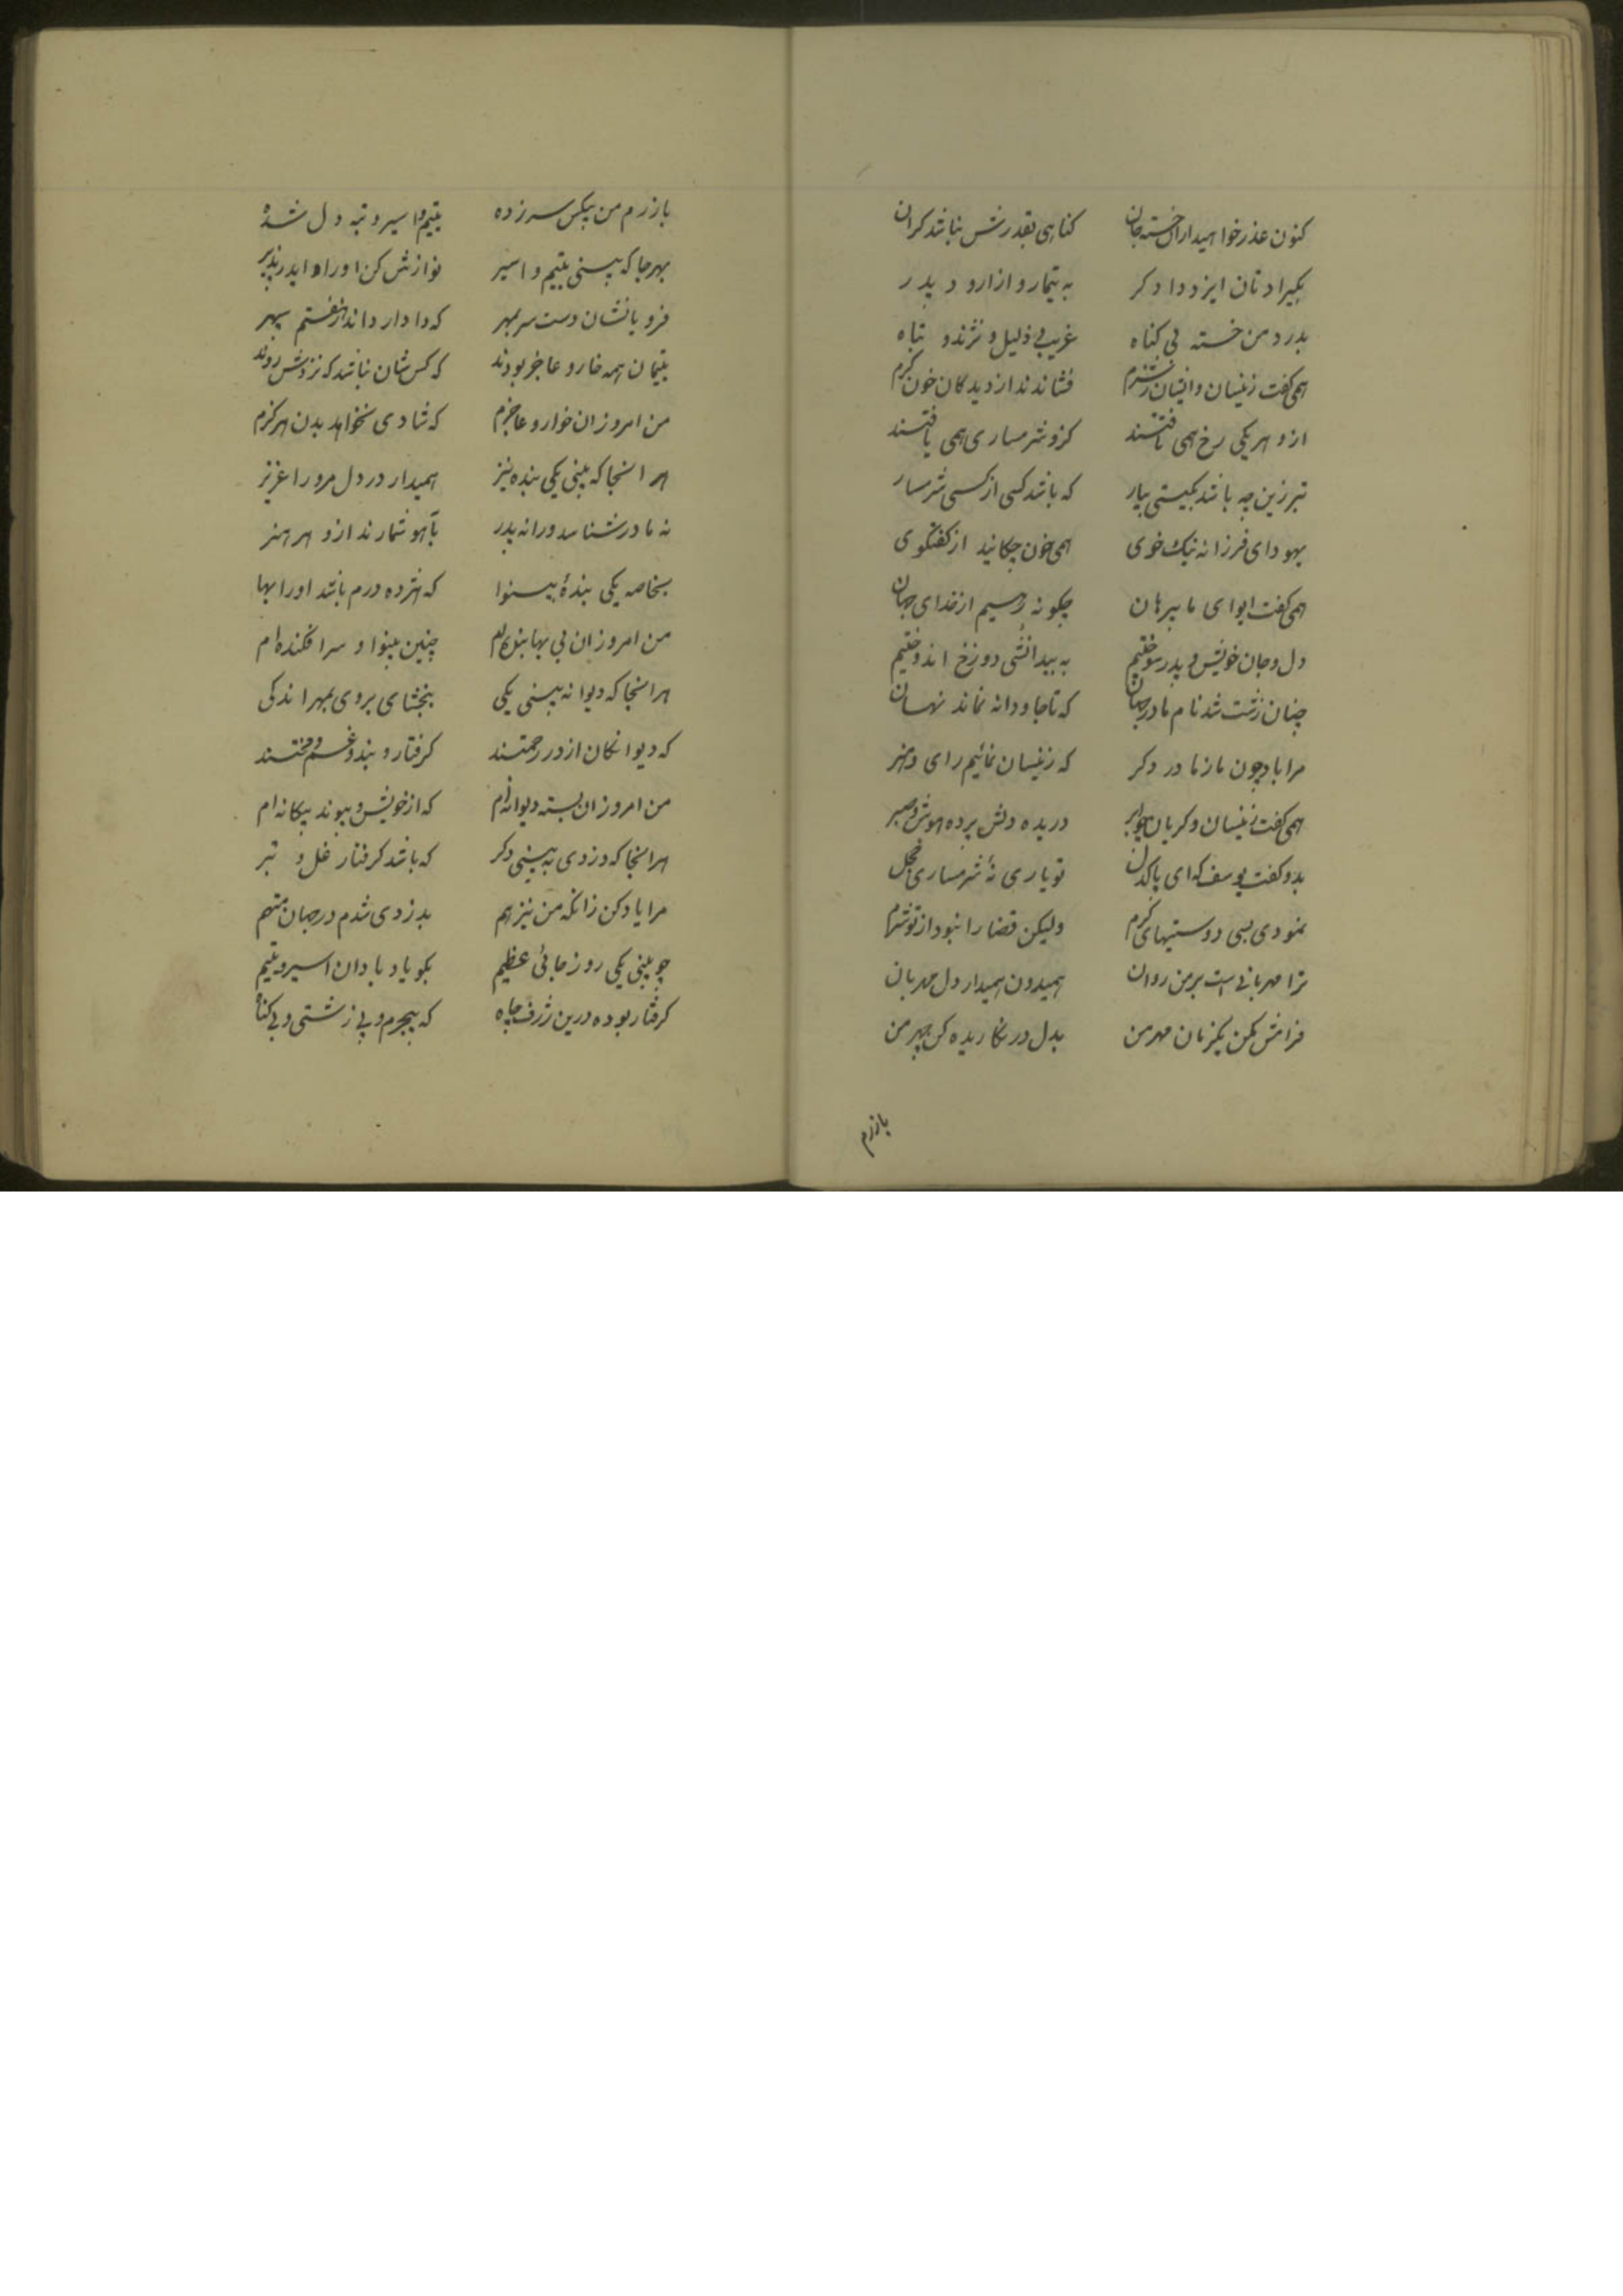 کنون عذر خواهید ازان خسته جان کناهی بقدرش نباشد کران
بکیرادتان ایزد دادکر به تیمار و ازار و درد پدر
بدرد من خسته بی کناه غریبی ذلیل و نژند و تباه
همی کفت زینسان و ایشان ز شرم فشاندند از دیدکان خون کرم
ازو هر یکی رخ همی تافتند کزو شرمساری همی یافتند
تبر زین چه باشد بکیتی بیار که باشد کسی از کسی شرمسار
یهودای فرزانه نیک خوی همی خون چکانید از کفتکوی
همی کفت ایوای ما بیرهان چکونه رهیم از خدای جهان
دل و جان خویش و پدر سوختیم به بیدانشی دوزخ اندوختیم
چنان زشت شد نام ما در جهان که تا جاودانه نماند نهان
مرا باد چون ما زمادر دکر که زینسان نمائیم رای و هنر
همی کفت زینسان و کریان چو ابر دریده دلش پرده هوش و صبر
بدو کفت یوسف که ای پاکدل تو باری نهٔ شرمساری خجل
نمودی بسی دوستیهای کرم ولیکن قضا را نبود از تو شرم
ترا مهربانی است بر من روان همیدون همیدار دل مهربان
فرامش مکن یکزمان مهر من بدل در نکاریده کن چهر من
بازرم
بازرم من بیکس سرزده یتیم و اسیر و تبه دل شده
بهر جا که بینی یتیم و اسیر نوازش کن او را و اندر پذیر
فرو مانشان دست بر سر بمهر که دادار داند از هفتم سپهر
یتیمان همه خار و عاجز بودند که کس شان نباشد که نزدش روند
من امروز ان خوار و عاجزم که شادی نخواهد بدن هرکزم
هر انجا که بینی یکی بنده نیز همیدار در دل مرو را عزیز
نه مادر شناسد ورا نه پدر بآهو شمارند ازو هر هنر
بخاصه یکی بندهٔ بینوا که هژده درم باشد او را بها
من امروز ان بی بها بنده‌ام چنین بینوا و سرافکنده‌ام
هر انجا که دیوانه بینی یکی ببخشای بروی بمهر اندکی
که دیوانکان از در رحمتند کرفتار و بند و غم و محنتند
من امروز ان بسته دیوانه‌ام که از خویش و پیوند بیکانه‌ام
هر انجا که دزدی به بینی دکر که باشد کرفتار غل و تبر
مرا یاد کن زانکه من نیز هم بدزدی شدم در جهان متهم
چو بینی یکی روز جائی عظیم بکو یاد بادان اسیر و یتیم
کرفتار بوده درین ژرف چاه که بیجرم و بی زشتی و بی کناه